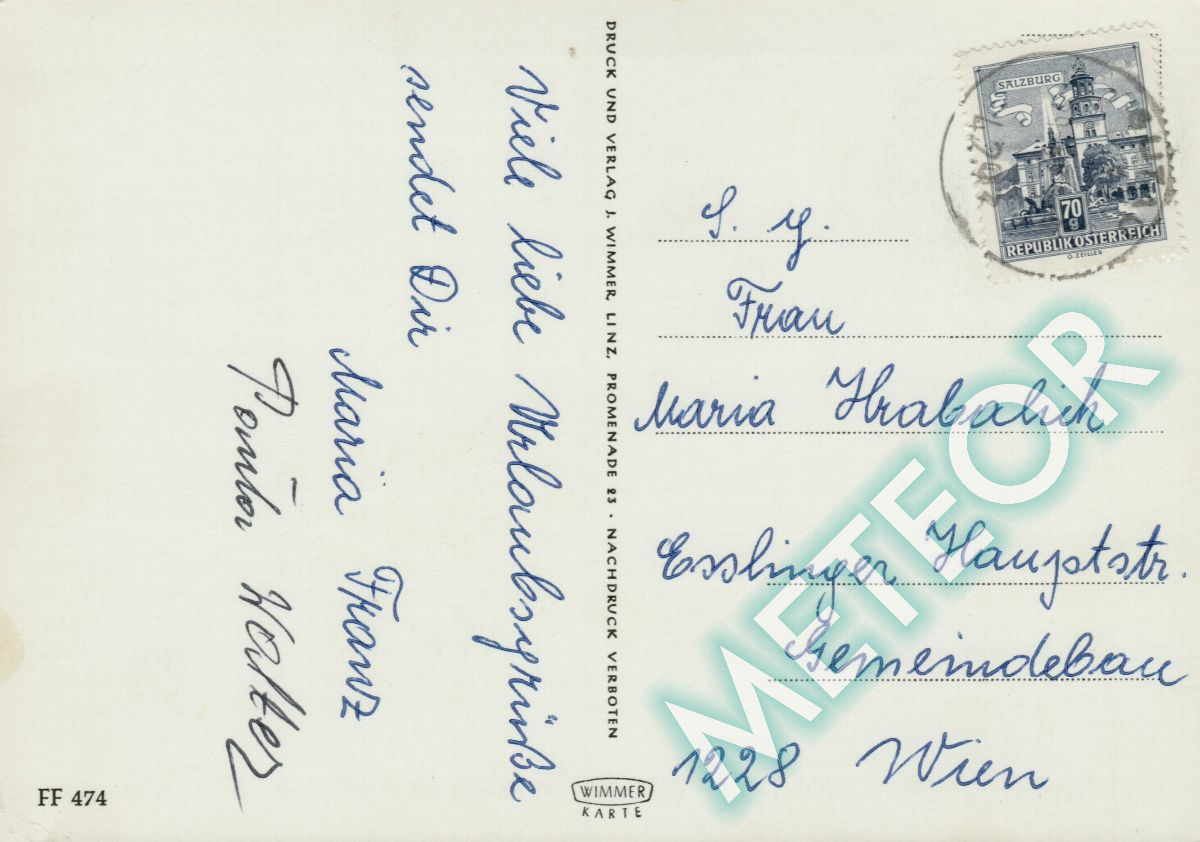 Viele liebe Urlaubsgrüße
sendet Dir
Maria Franz
Walter
DRUCK UND VERLAG J. WIMMER, LINZ, PROMENADE 23 · NACHDRUCK VERBOTEN
SALZBURG
70
g
REPUBLIK ÖSTERREICH
O. ZEILLER
S. g.
Frau
Maria Hrabalich
Esslinger Hauptstr.
Gemeindebau
1228 Wien
METEOR
FF 474
WIMMER
KARTE